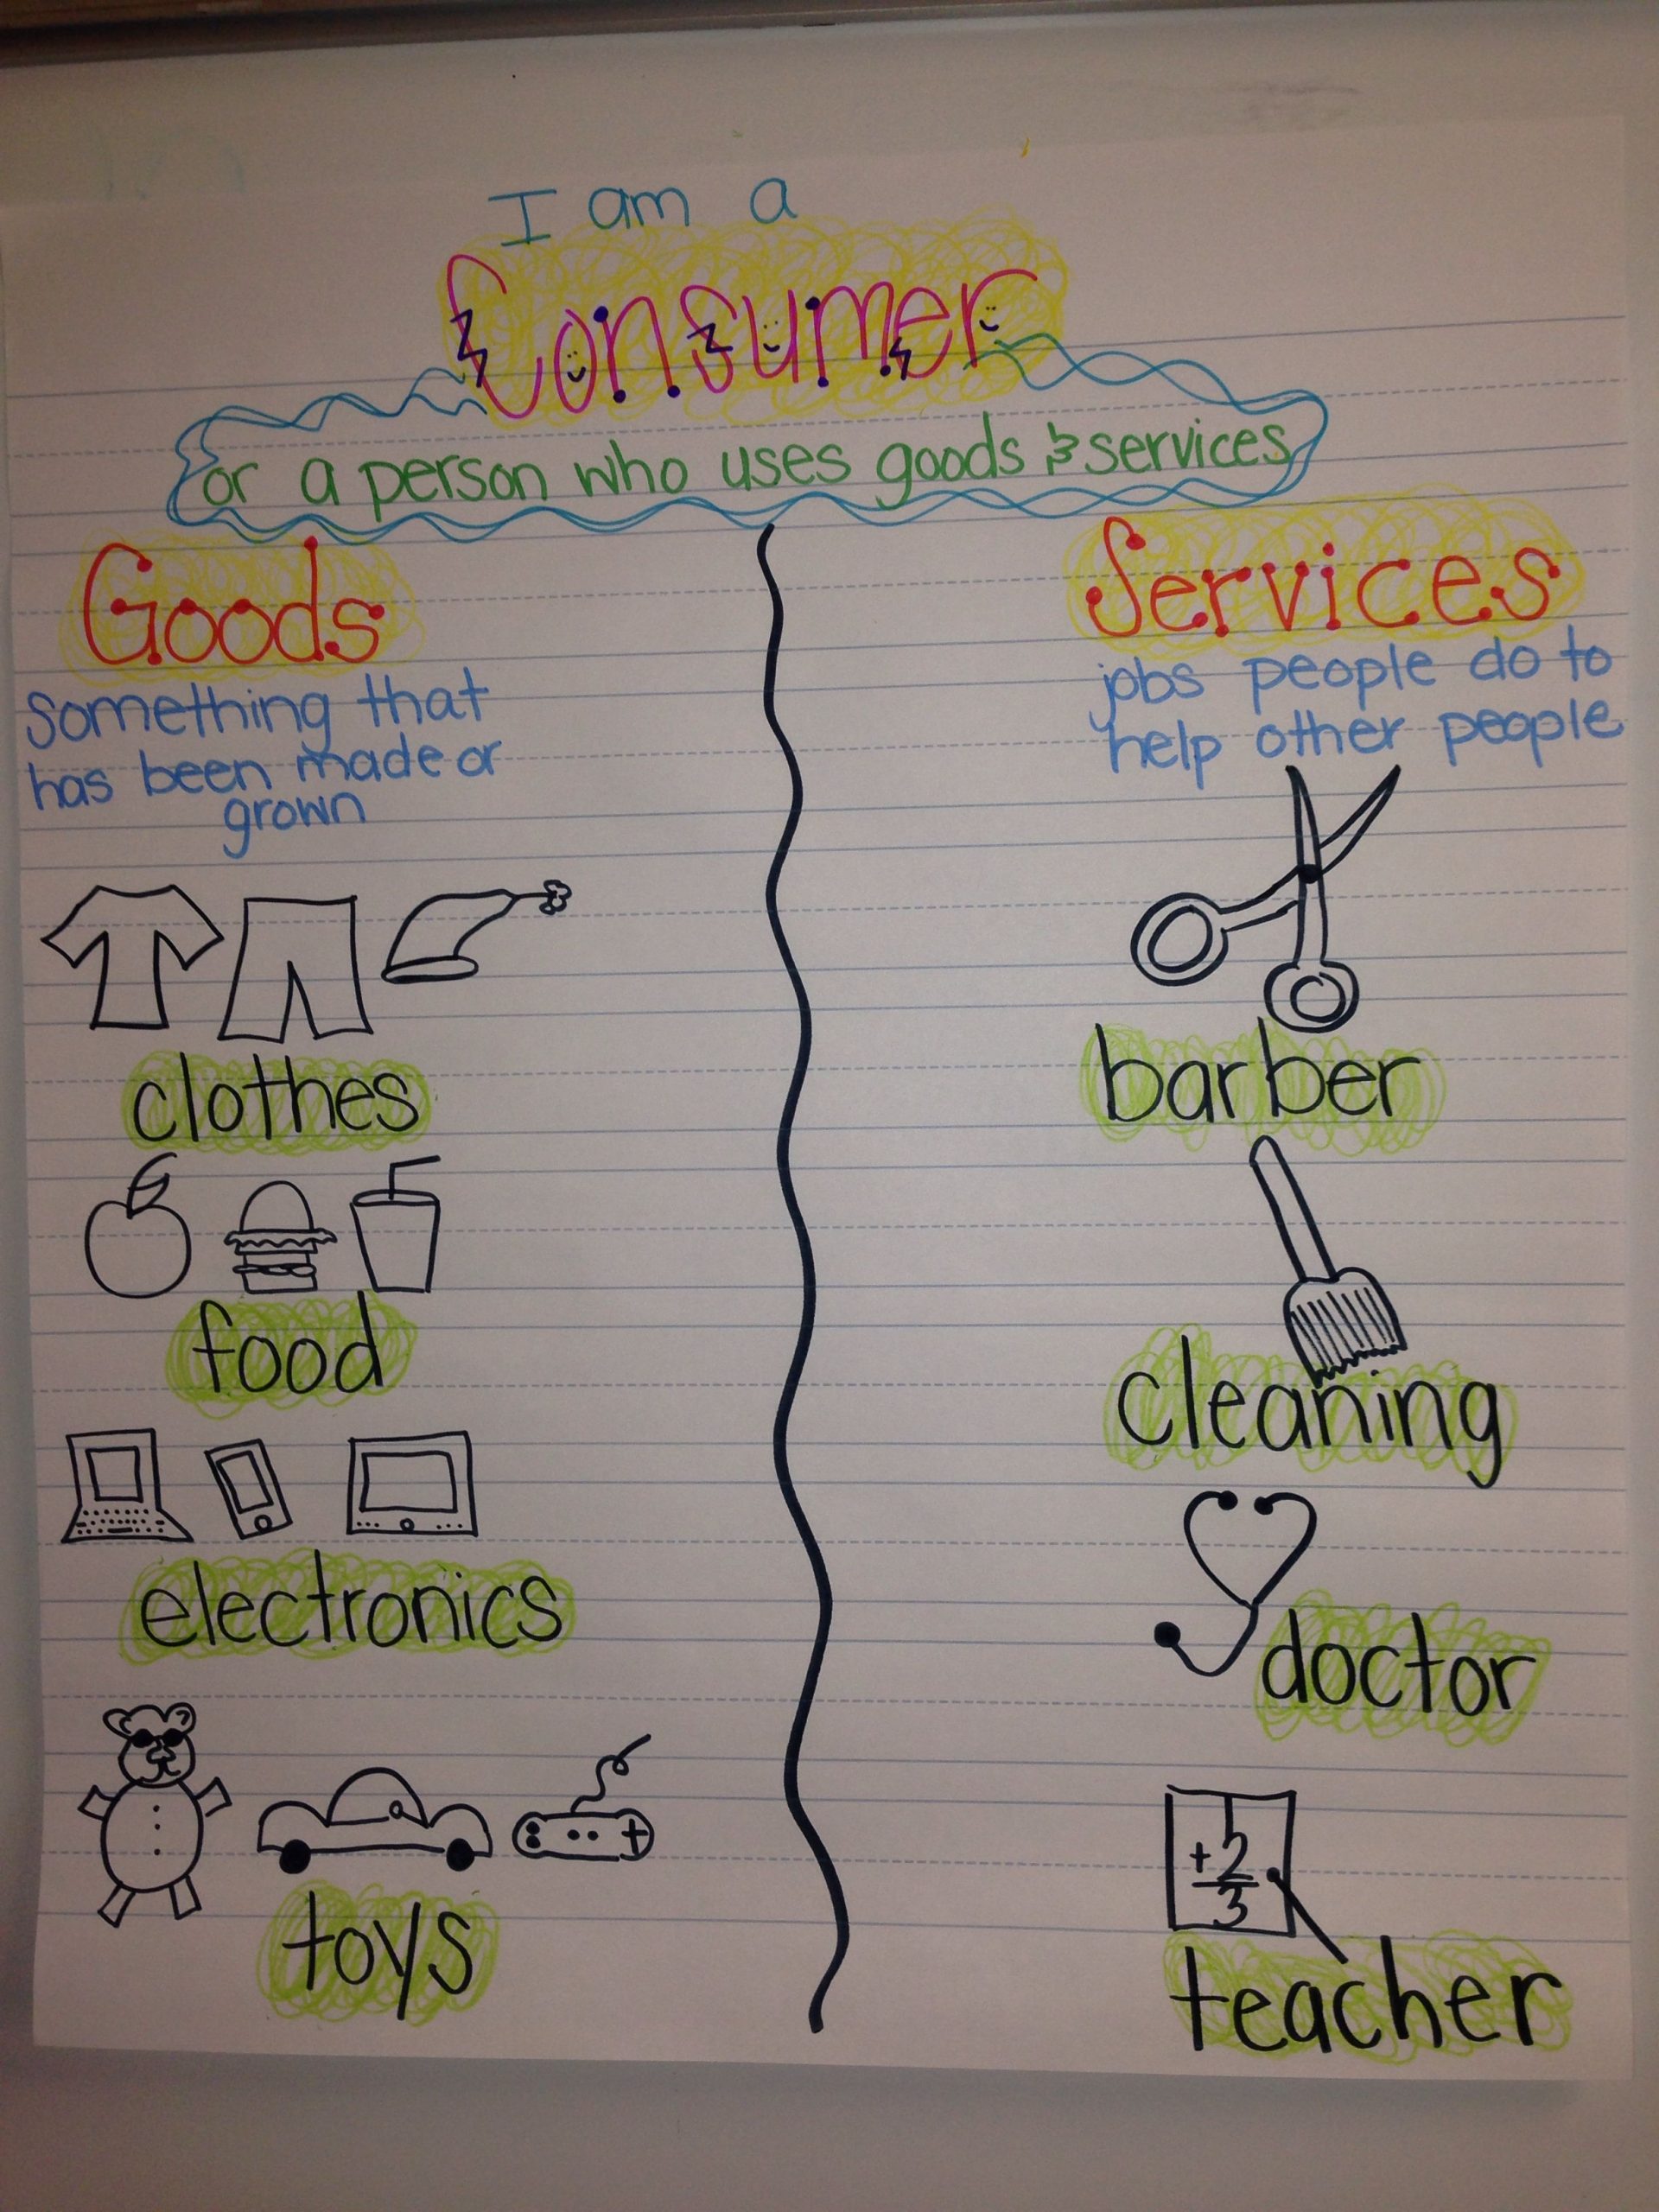 I am a
Consumer
or a person who uses goods & services
Goods
Something that
has been made or
grown
clothes
food
electronics
toys
Services
jobs people do to
help other people
barber
cleaning
doctor
1
+2
3
teacher